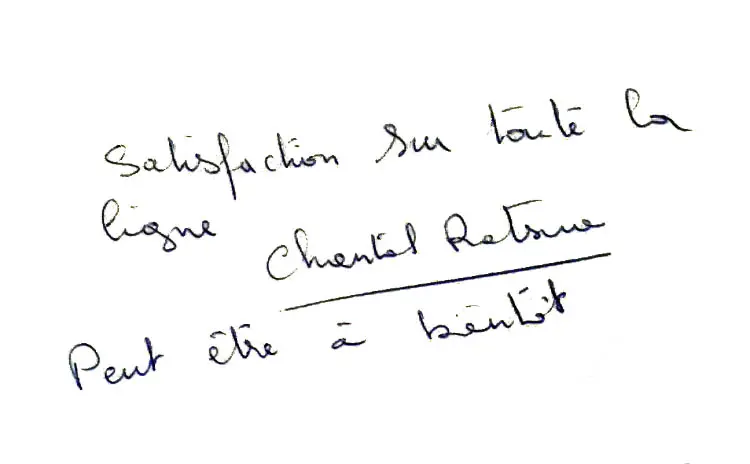 Satisfaction sur toute la
ligne
Chantal
Peut être à bientôt